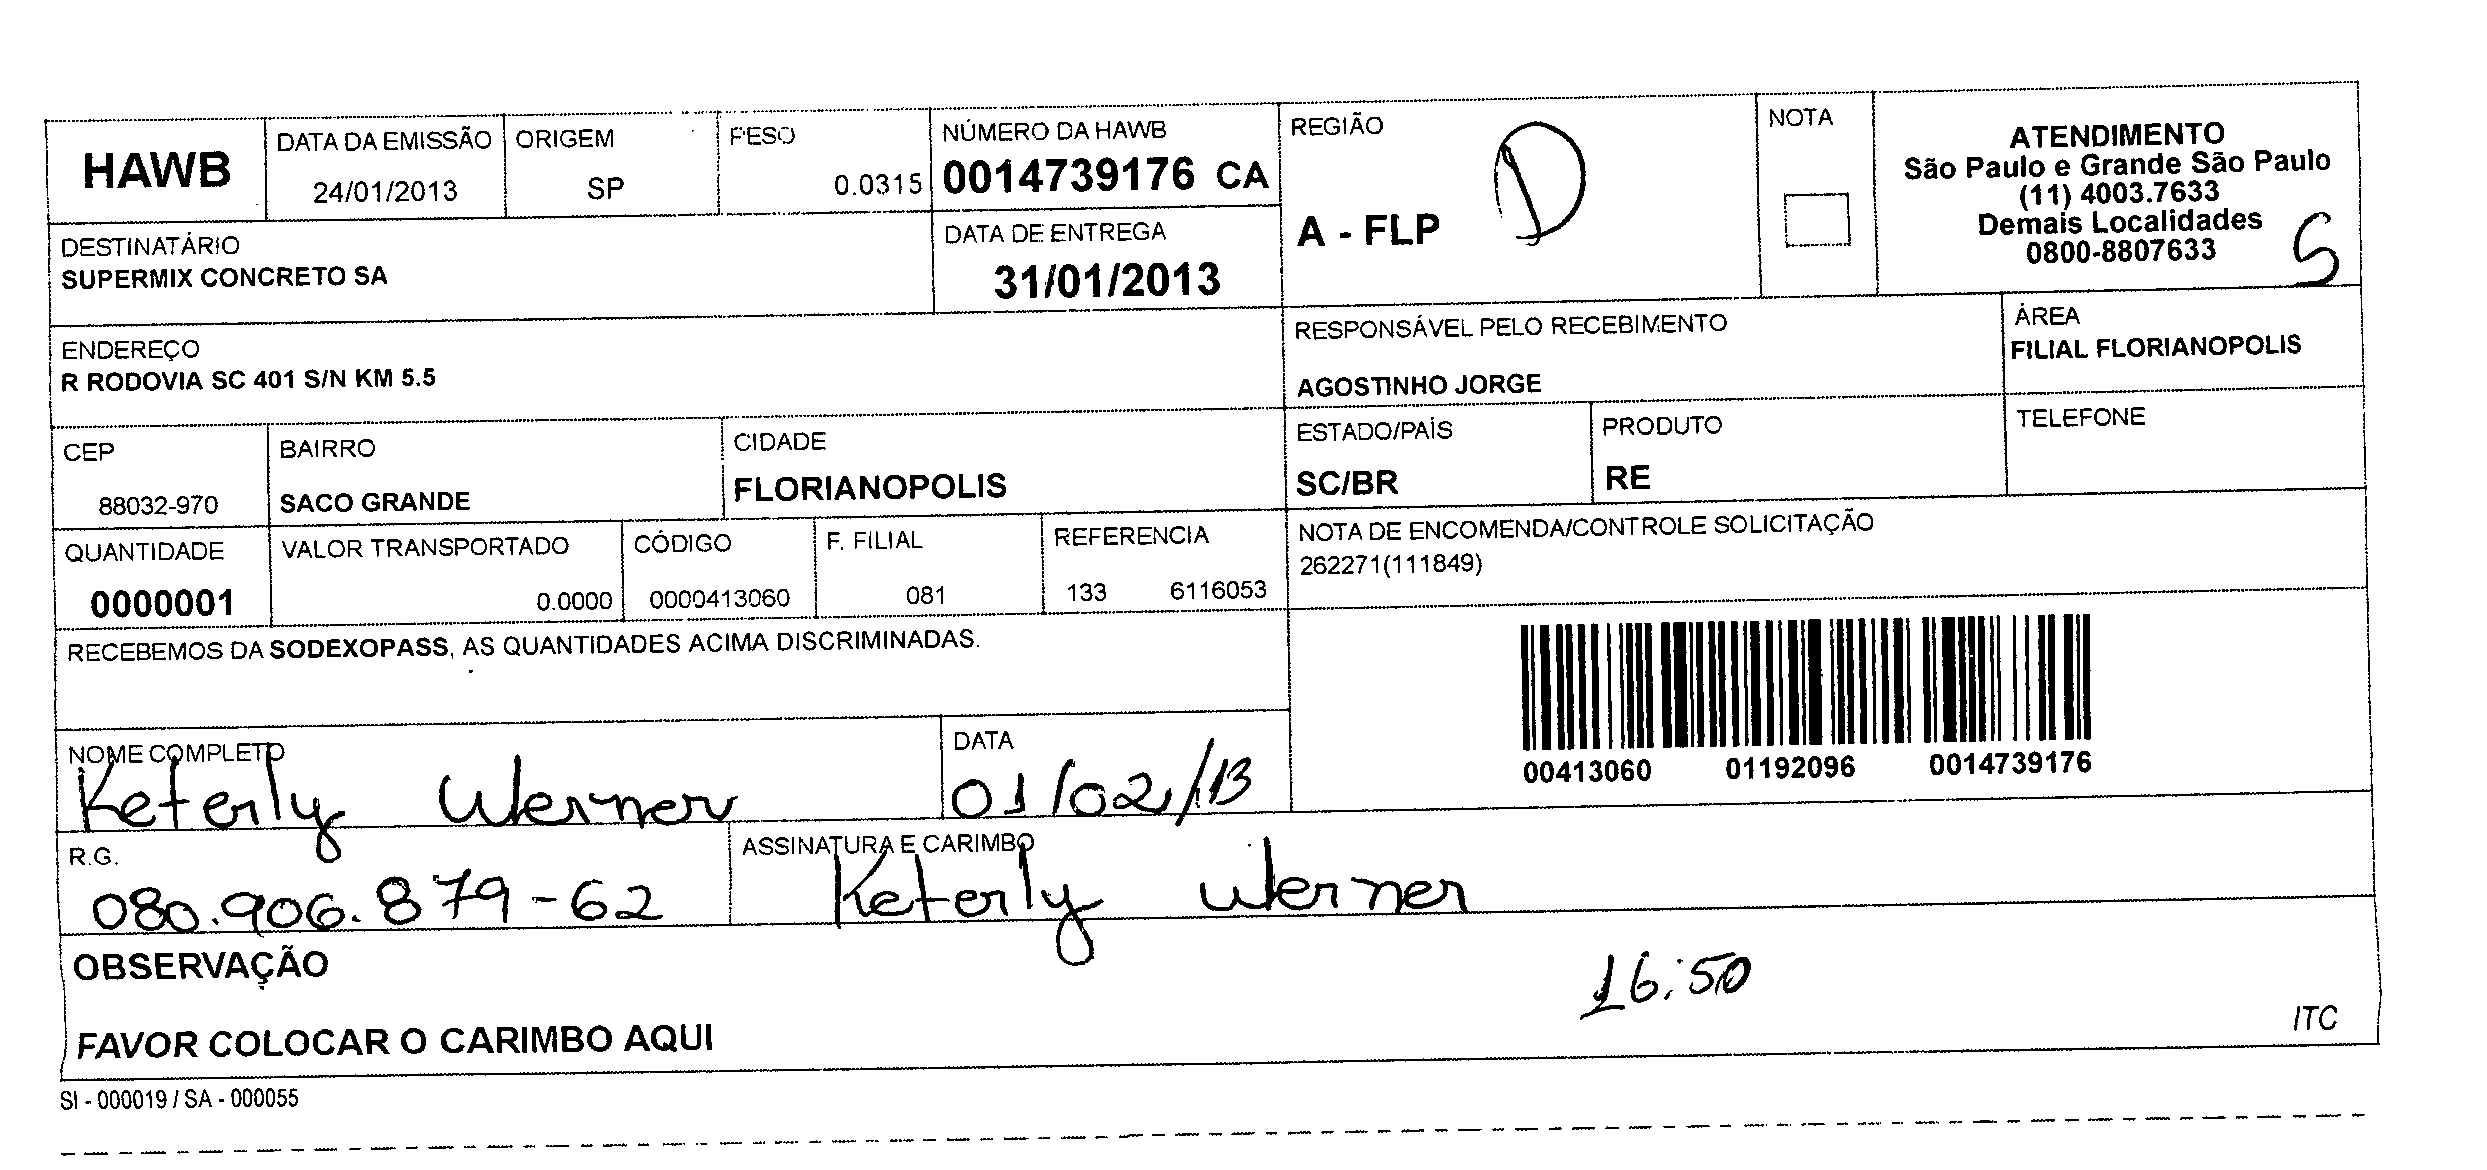 HAWB
DATA DA EMISSÃO
24/01/2013
ORIGEM
SP
PESO
0.0315
NÚMERO DA HAWB
0014739176 CA
REGIÃO
A - FLP
D
NOTA
ATENDIMENTO
São Paulo e Grande São Paulo
(11) 4003.7633
Demais Localidades
0800-8807633
S
DESTINATÁRIO
SUPERMIX CONCRETO SA
DATA DE ENTREGA
31/01/2013
ENDEREÇO
R RODOVIA SC 401 S/N KM 5.5
RESPONSÁVEL PELO RECEBIMENTO
AGOSTINHO JORGE
ÁREA
FILIAL FLORIANOPOLIS
CEP
88032-970
BAIRRO
SACO GRANDE
CIDADE
FLORIANOPOLIS
ESTADO/PAÍS
SC/BR
PRODUTO
RE
TELEFONE
QUANTIDADE
0000001
VALOR TRANSPORTADO
0.0000
CÓDIGO
0000413060
F. FILIAL
081
REFERENCIA
133 6116053
NOTA DE ENCOMENDA/CONTROLE SOLICITAÇÃO
262271(111849)
RECEBEMOS DA SODEXOPASS, AS QUANTIDADES ACIMA DISCRIMINADAS.
00413060 01192096 0014739176
NOME COMPLETO
Keterly Werner
DATA
01/02/13
R.G.
080.906.879-62
ASSINATURA E CARIMBO
Keterly Werner
OBSERVAÇÃO
16:50
FAVOR COLOCAR O CARIMBO AQUI
ITC
SI - 000019 / SA - 000055